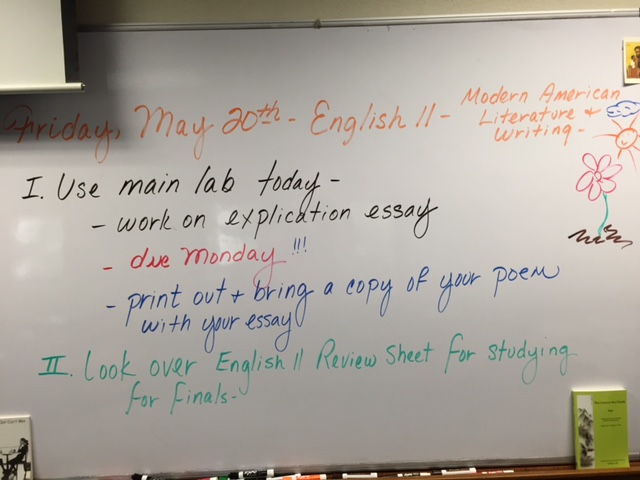 Friday, May 20th - English 11 - Modern American
Literature +
Writing -
I. Use main lab today -
- work on explication essay
- due Monday !!!
- print out + bring a copy of your poem
with your essay
II. Look over English 11 Review Sheet for studying
for Finals -